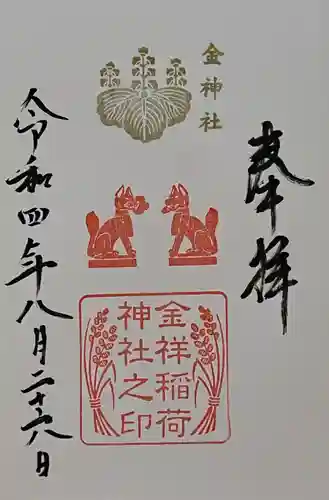 奉拝
金神社
金祥稲荷
神社之印
令和四年八月二十八日